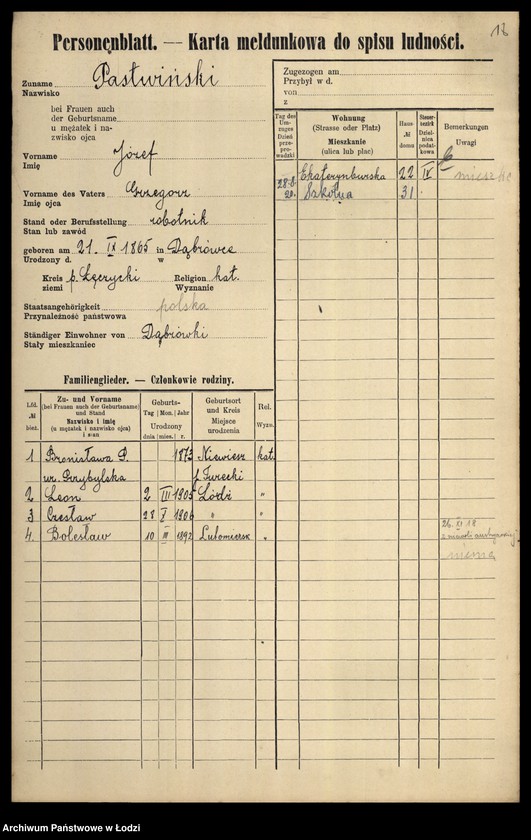 18
Personenblatt. — Karta meldunkowa do spisu ludności.
Zuname Pastwiński
Nazwisko
bei Frauen auch
der Geburtsname
u mężatek i na-
zwisko ojca
Vorname Józef
Imię
Vorname des Vaters Grzegorz
Imię ojca
Stand oder Berufsstellung robotnik
Stan lub zawód
geboren am 21. IX 1865 in Dąbrówce
Urodzony d. w
Kreis p. Łęczycki Religion kat.
ziemi Wyznanie
Staatsangehörigkeit polska
Przynależność państwowa
Ständiger Einwohner von Dąbrówki
Stały mieszkaniec
Zugezogen am
Przybył w d.
von
z
Tag des Um-zuges Dzień prze-prowadzki
Wohnung
(Strasse oder Platz)
Mieszkanie
(ulica lub plac)
Haus № domu
Steuer-bezirk Dziel-nica podat-kowa
Bemerkungen
Uwagi
Ekaterynburska 22 IV
28-8. 20. Szkolna 31.
Familienglieder. — Członkowie rodziny.
Lfd. № bież.
Zu- und Vorname
(bei Frauen auch der Geburtsname)
und Stand
Nazwisko i imię
(u mężatek i nazwisko ojca)
i stan
Geburts-
Tag Mon. Jahr
Urodzony
dnia mies. r.
Geburtsort
und Kreis
Miejsce
urodzenia
Rel.
Wyzn.
1 Bronisława P. 1873 Niewiesz kat.
ur. Grzybylska p. Turecki
2 Leon 2 III 1905 Łódź "
3 Czesław 28 V 1906 " "
4. Bolesław 10 III 1892 Lutomiersk "
26. XI 18
niema
Archiwum Państwowe w Łodzi